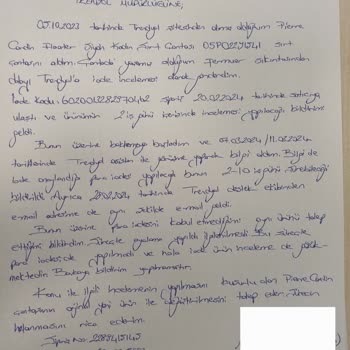 TRENDYOL MÜDÜRLÜĞÜNE,
05.10.2023 tarihinde Trendyol sitesinden almış olduğum Pierre
Cardin Floater Siyah Kadın Sırt Çantası 05PO22W1241 sırt
çantasını aldım. Çantadaki yaşamış olduğum fermuar sıkıntılarından
dolayı Trendyol'a iade incelemesi olarak gönderdim.
İade Kodu: 6020013282970462 20.02.2024 tarihinde satıcıya
ulaştı ve ürünümün 2 iş günü içerisinde incelemesi yapılacağı bildirimi
geldi.
Bunun üzerine beklemeye başladım ve 07.03.2024 / 11.03.2024
tarihlerinde Trendyol asistan ile görüşme yaparak bilgi aldım. Bilgi de
iade onaylandığı para iadesi yapılacağı bunun 2-10 iş günü süreceğini
bildirildi. Ayrıca 28.02.2024 tarihinde Trendyol destek ekibinden
e-mail adresime de aynı şekilde e-mail geldi.
Bunun üzerine para iadesini kabul etmediğimi aynı ürünü talep
ettiğimi bildirdim. Süreçte oyalama yapıldı ilgilenilmedi. Bu süreçte
para iadesi de yapılmadı ve hala iade ürün inceleme de gözük-
mektedir. Başkaca bildirim yapılmamıştır.
Konu ile ilgili incelemenin yapılması kusurlu olan Pierre Cardin
çantasının orjinal yeni ürün ile değiştirilmesini talep eder. Sürecin
hızlanmasını rica ederim.
Sipariş No: